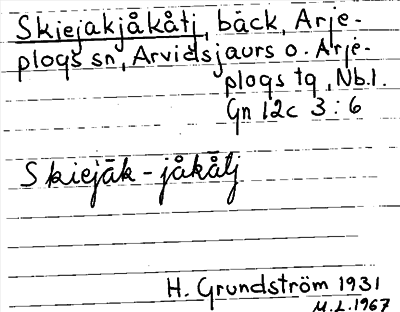 Skiejakjåkåtj, bäck, Arje-
plogs sn, Arvidsjaurs o. Arje-
plogs tg, Nb.l.
Gn 12c 3:6
Skiejāk-jåkåtj
H. Grundström 1931
M.L. 1967